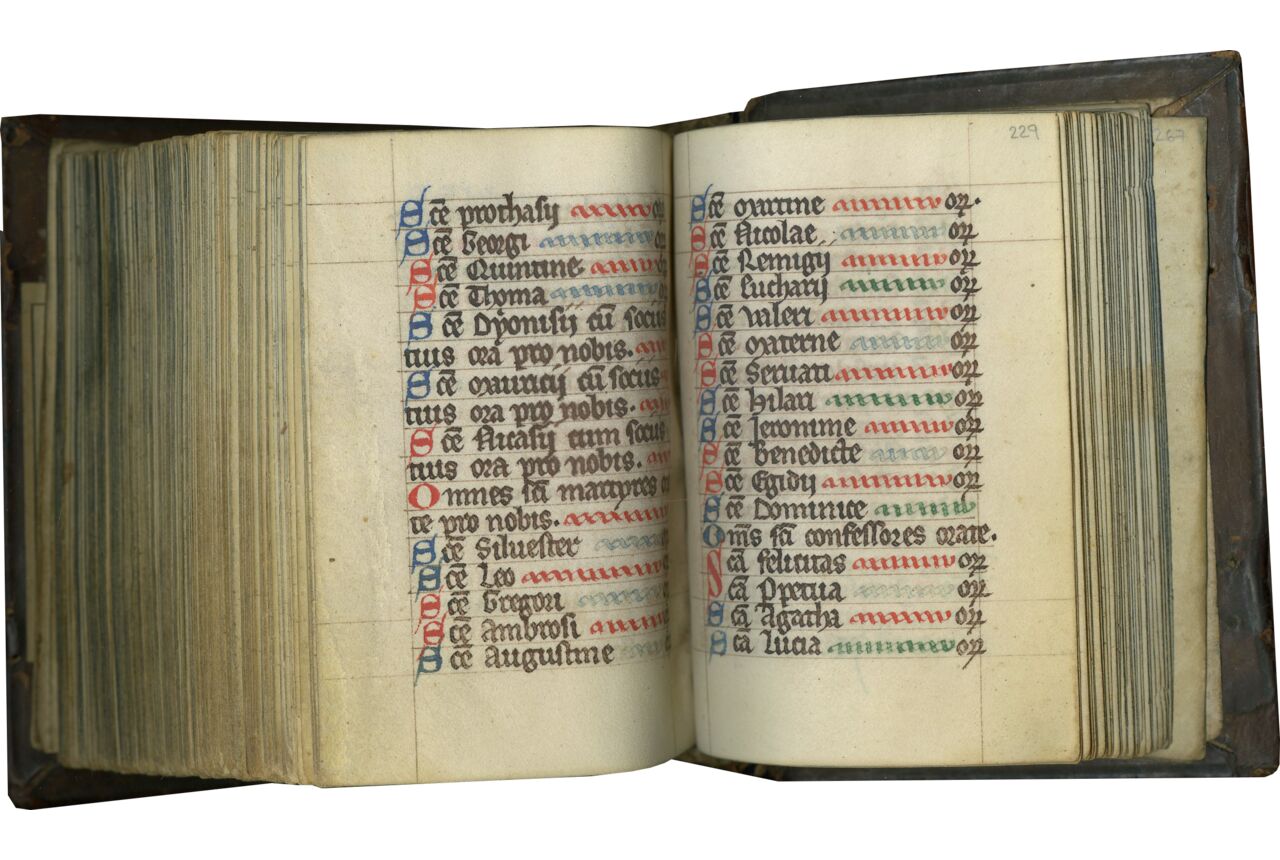 Sce prothasij or
Sce Georgi or
Sce Quintine or
Sce Thoma or
Sce Dyonisij cū socus
tuis ora pro nobis.
Sce Mauricij cū socus
tuis ora pro nobis.
Sce Nicasij cum socus
tuis ora pro nobis.
Omnes sci martyres o
te pro nobis.
Sce Siluester
Sce Leo
Sce Gregori
Sce Ambrosi
Sce Augustine
229
267
Sce Martine or.
Sce Nicolae or
Sce Remigij or
Sce Eucharij or
Sce Valeri or
Sce Materne or
Sce Seruati or
Sce hilari or
Sce Jeronime or
Sce Benedicte or
Sce Egidij or
Sce Dominice
Oms sci confessores orate.
Sca felicitas or
Sca Ppetua or
Sca Agatha or
Sca Lucia or